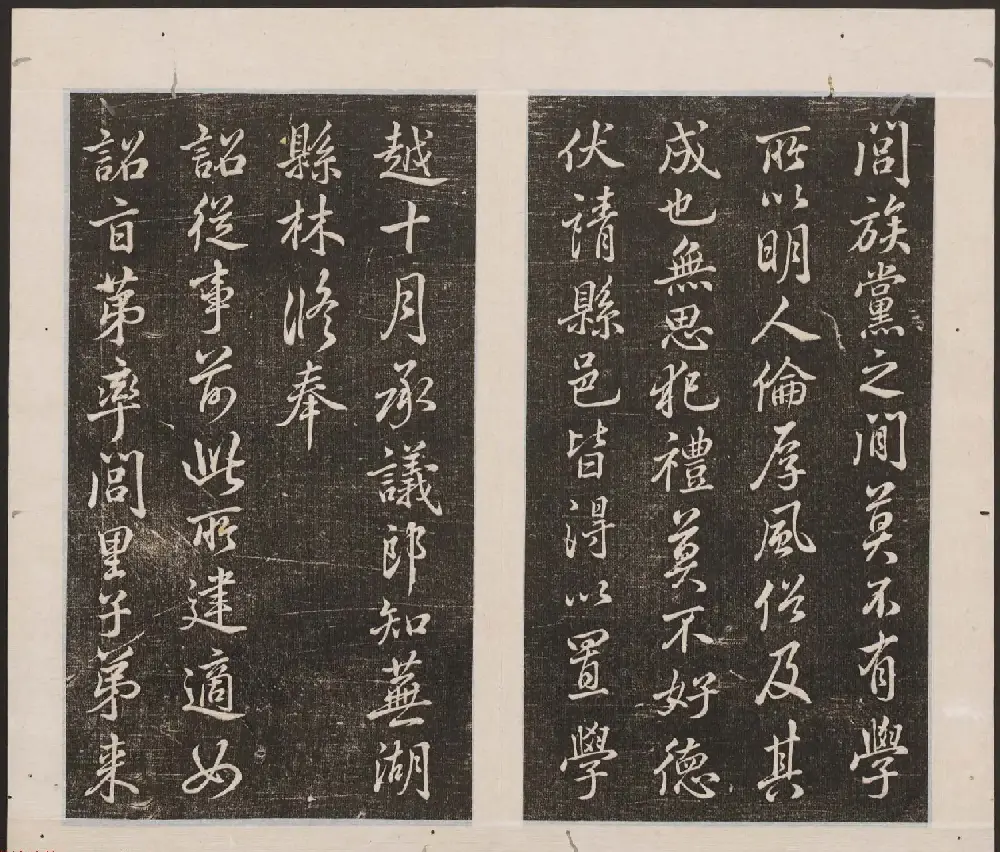 閭族黨之間莫不有學
所以明人倫厚風俗及其
成也無思犯禮莫不好德
伏請縣邑皆得以置學
越十月承議郎知蕪湖
縣林脩奉
詔從事前此所建適如
詔旨第率閭里子弟来